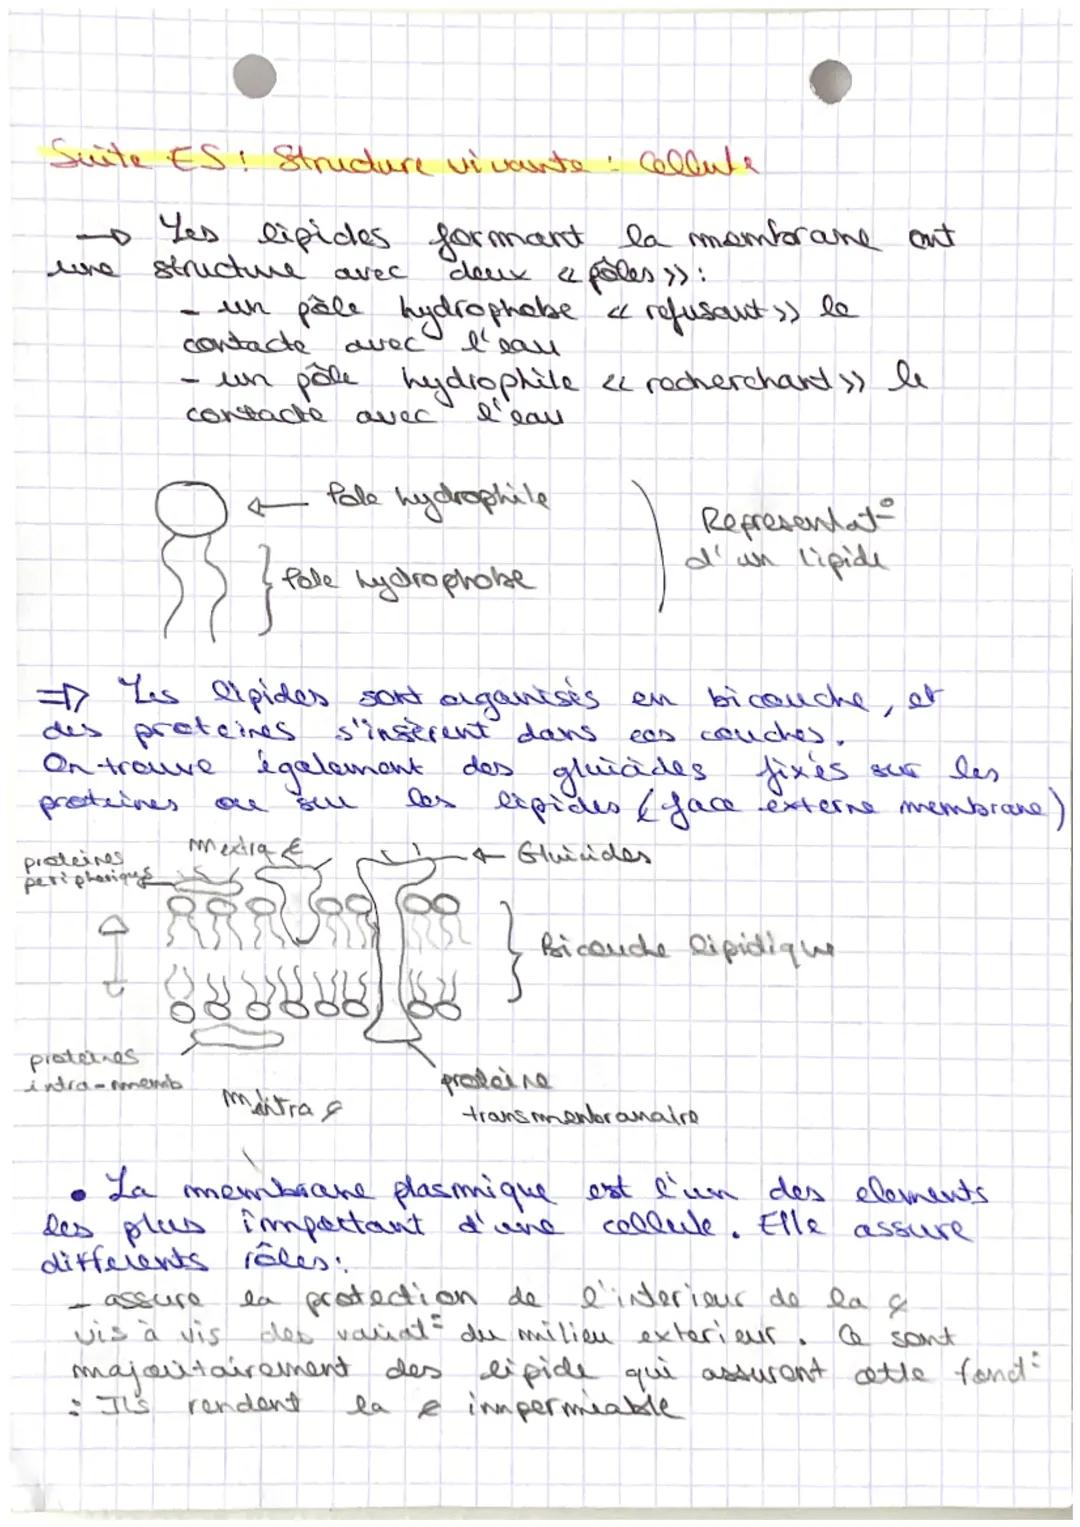 Suite ES : Structure vivante : Cellule
→ Les lipides formant la membrane ont
une structure avec deux << pôles >> :
- un pôle hydrophobe << refusant >> le
contacte avec l'eau
- un pôle hydrophile << recherchant >> le
contacte avec l'eau
← Pole hydrophile
Representat°
d'un lipide
} Pole hydrophobe
⇒ Les lipides sont organisés en bicouche, et
des proteines s'insèrent dans ces couches.
On trouve également des glucides fixés sur les
proteines ou sur les lipides (face externe membrane)
proteines
periphériques
← Glucides
} Bicouche lipidique
proteines
intra-memb
proteine
transmembranaire
• La membrane plasmique est l'un des elements
les plus important d'une cellule. Elle assure
differents rôles :
- assure la protection de l'interieur de la
vis à vis des variat° du milieu exterieur. Ce sont
majoritairement des lipide qui assurent cette fonct°
: Ils rendent la impermeable